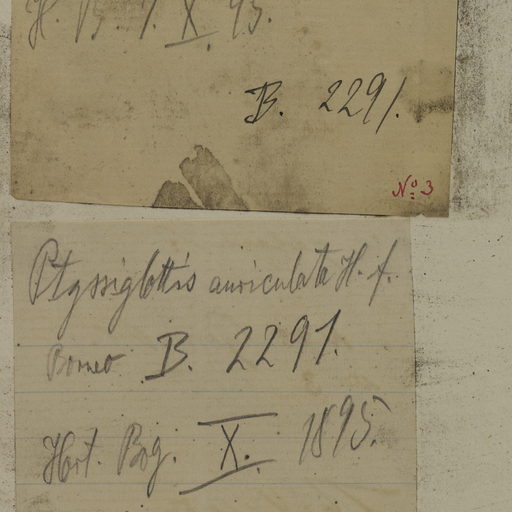 H. B. 1. X. 95.
B. 2291.
No 3
Ptyssiglottis auriculata H. f.
Borneo B. 2291.
Hort. Bog. X. 1895.